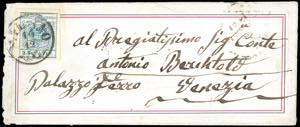 al Pregiatissimo Sig. Conte
Antonio Berchtold
Palazzo Zerro
Venezia